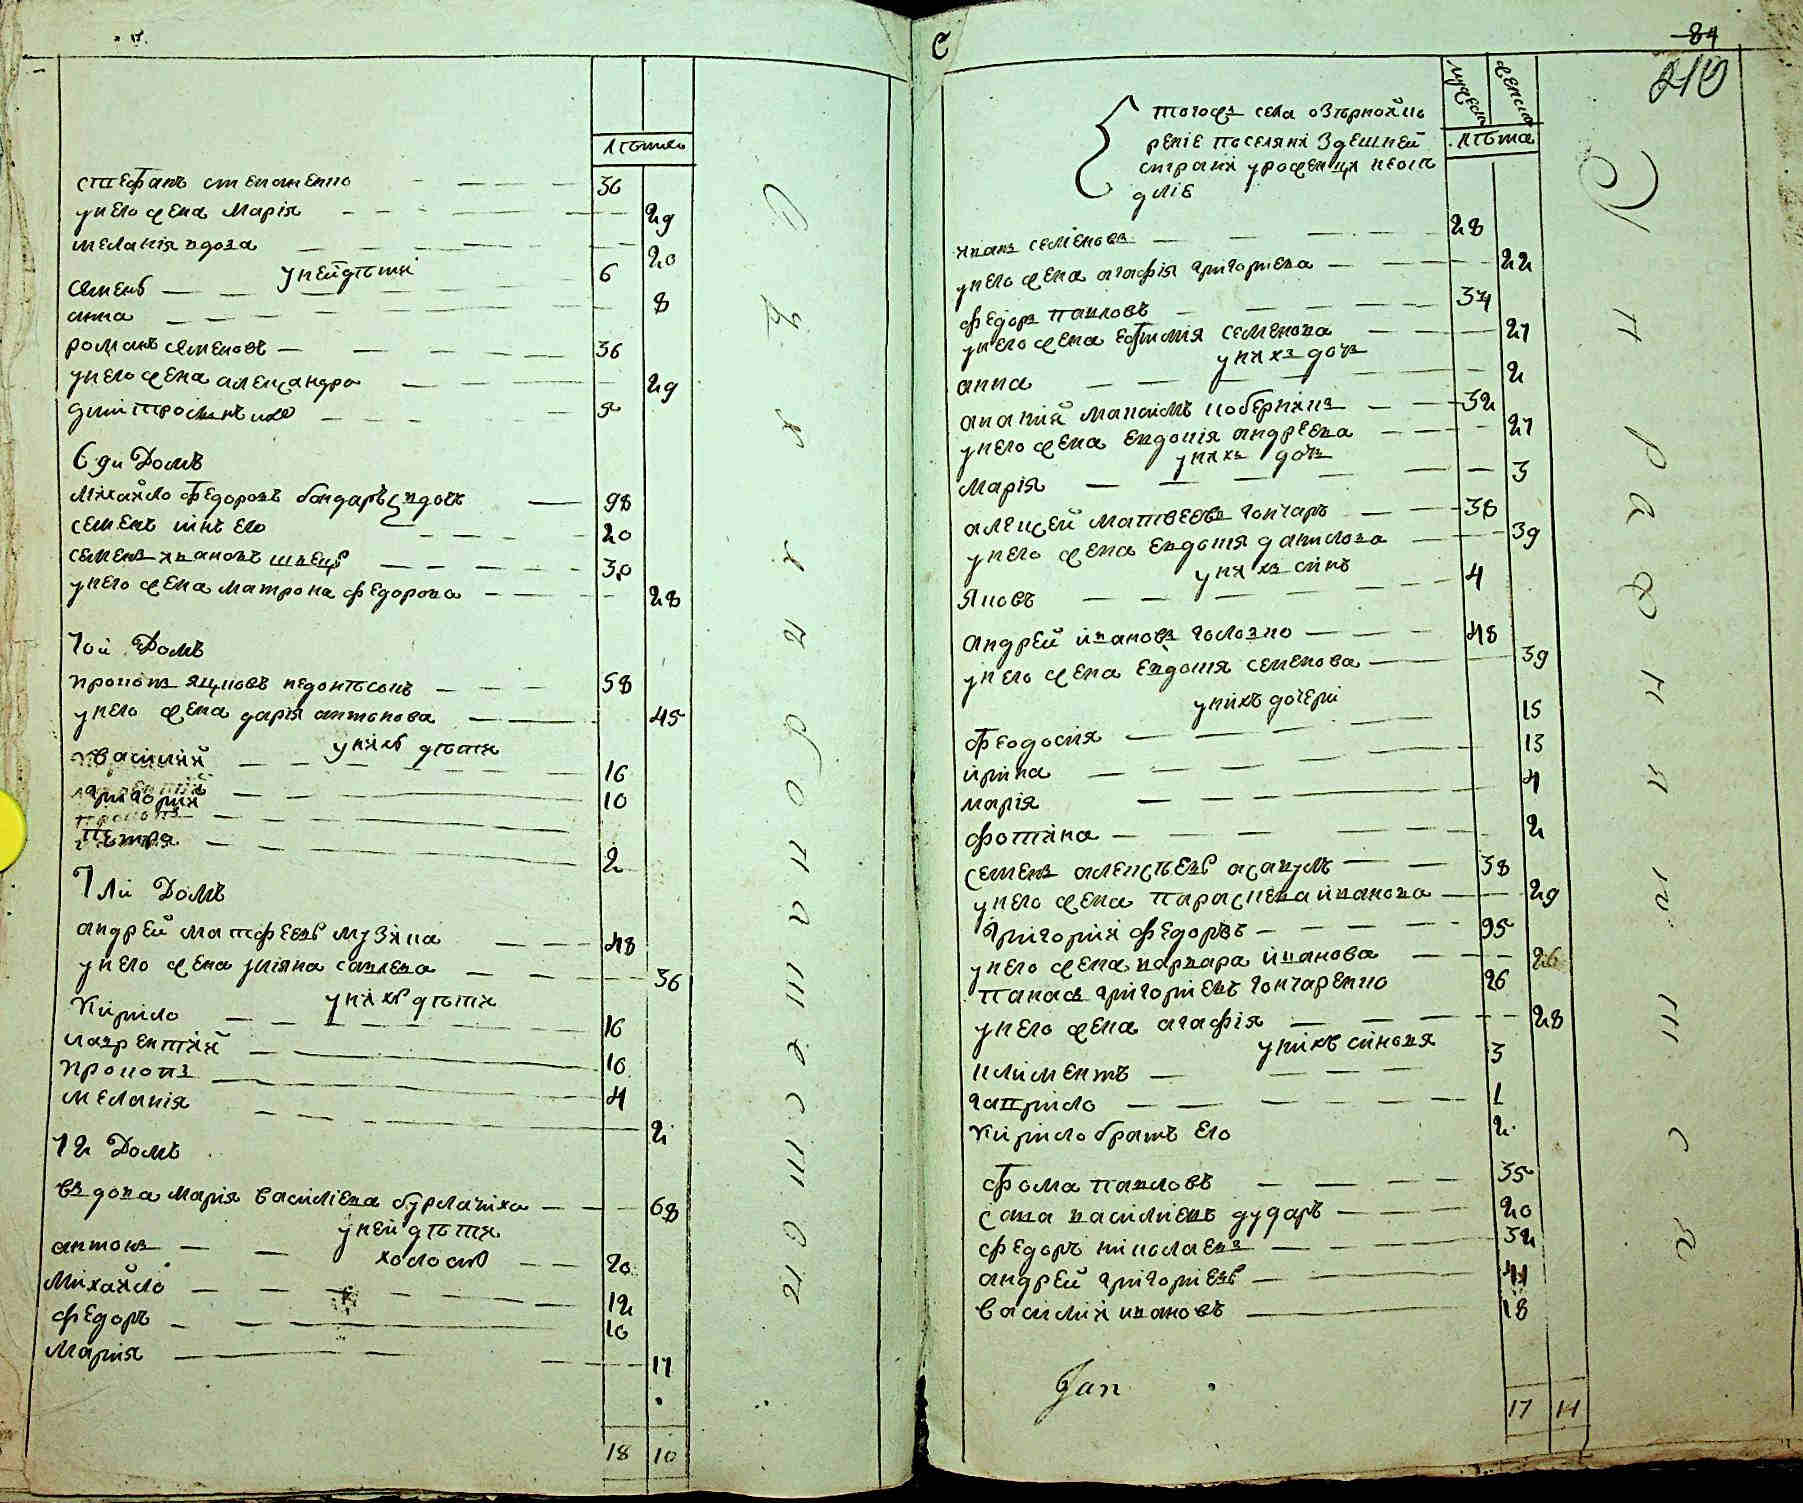 лѣта
стефанъ степаненко 36
унего жена Марія 29
меланія вдова 20
уней дѣти
семенъ 6
анна 8
романъ семеновъ 36
унего жена александра 29
димитро синъ ихъ 5
69и Домъ
Михайло федоровъ бондаръ вдовъ 98
семенъ синъ его 20
семенъ ивановъ швецъ 30
унего жена матрона федорова 28
70й Домъ
прокопъ яцковъ недонѣсокъ 58
унего жена дарія антонова 45
унихъ дѣти
василий 16
григорий 10
петръ 2
71й Домъ
андрей матфеевъ музика 48
унего жена уліяна савлева 36
унихъ дѣти
Кирило 16
лаврентій 10
прокопъ 4
меланія 2
72 Домъ
вдова Марія василіева бурлачиха 68
уней дѣти
антонъ холостъ 20
Михайло 12
федоръ 10
Марія 17
18 10
С 84
210
тогожъ села озѣрной ко
рение поселяни здешней
страни уроженци неосѣ
дліе
мужеска женска
лѣта
иванъ семеновъ 28
унего жена агафія григориева 22
федоръ павловъ 34
унего жена ефимія семенова 27
унихъ дочь
анна 2
ананий манаимъ коберникъ 32
унего жена евдокія андреева 27
унихъ дочь
Марія 3
алексей матвеевъ гончаръ 36
унего жена евдокия данилова 39
унихъ синъ
яковъ 4
андрей ивановъ головко 48
унего жена евдокия семенова 39
унихъ дочери
феодосия 15
ирина 13
марія 4
фотина 2
семенъ алексѣевъ асавулъ 38
унего жена параскева иванова 29
григорий федоровъ 95
унего жена варвара иванова 26
панасъ григориевъ гончаренко 26
унего жена агафія 28
унихъ синовя
климентъ 3
гаврило 1
Кирило братъ его 2
фома павловъ 35
сава василиевъ дударъ 20
федоръ николаевъ 32
андрей григориевъ 41
василий ивановъ 18
Jan
17 14